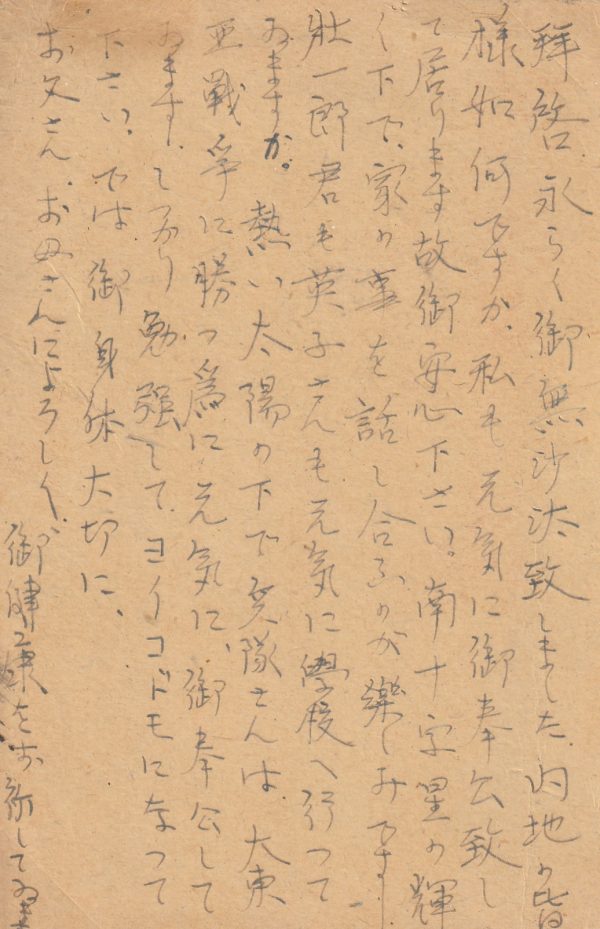 拝啓 永らく御無沙汰致しました。内地の皆
様如何ですか、私も元気に御奉公致し
て居ります故御安心下さい。南十字星の輝
く下で、家の事を話し合ふのが楽しみです
壮一郎君も英子さんも元気に學校へ行つて
ゐますか。熱い太陽の下で兵隊さんは、大東
亜戰爭に勝つ為に元気に、御奉公して
ゐます。しつかり勉强して、ヨイコドモになつて
下さい。では御身体大切に、
お父さん、お母さんによろしく、御健康をお祈してゐま